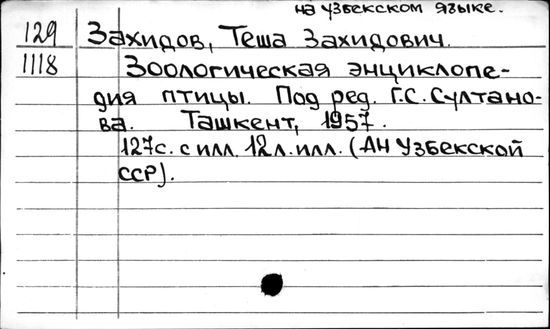 на узбекском языке.
129 Захидов, Теша Захидович.
1118 Зоологическая энциклопе-
дия птицы. Под ред. Г.С. Султано-
ва. Ташкент, 1957.
127с. с илл. 12л. илл. (АН Узбекской
ССР).